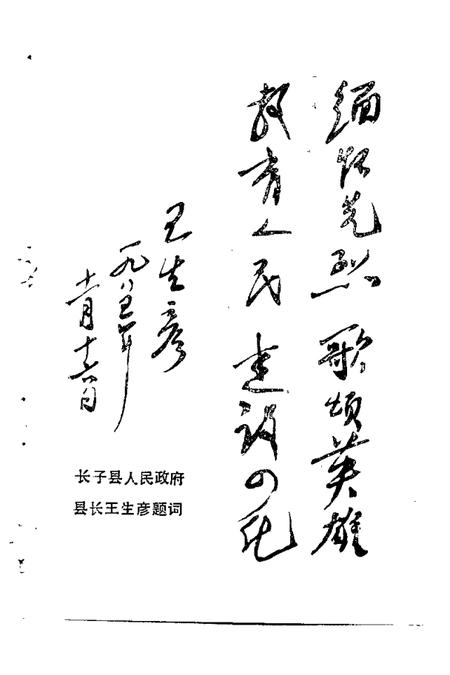 缅怀先烈 歌颂英雄
教育人民 建设四化
王生彦
一九八五年
十一月十六日
长子县人民政府
县长王生彦题词